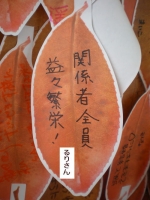 関係者全員
益々繁栄！
るりさん